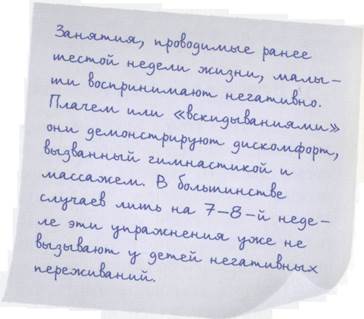 Занятия, проводимые ранее
шестой недели жизни, малы-
ши воспринимают негативно.
Плачем или «вскидываниями»
они демонстрируют дискомфорт,
вызванный гимнастикой и
массажем. В большинстве
случаев лишь на 7–8-й неде-
ле эти упражнения уже не
вызывают у детей негативных
переживаний.